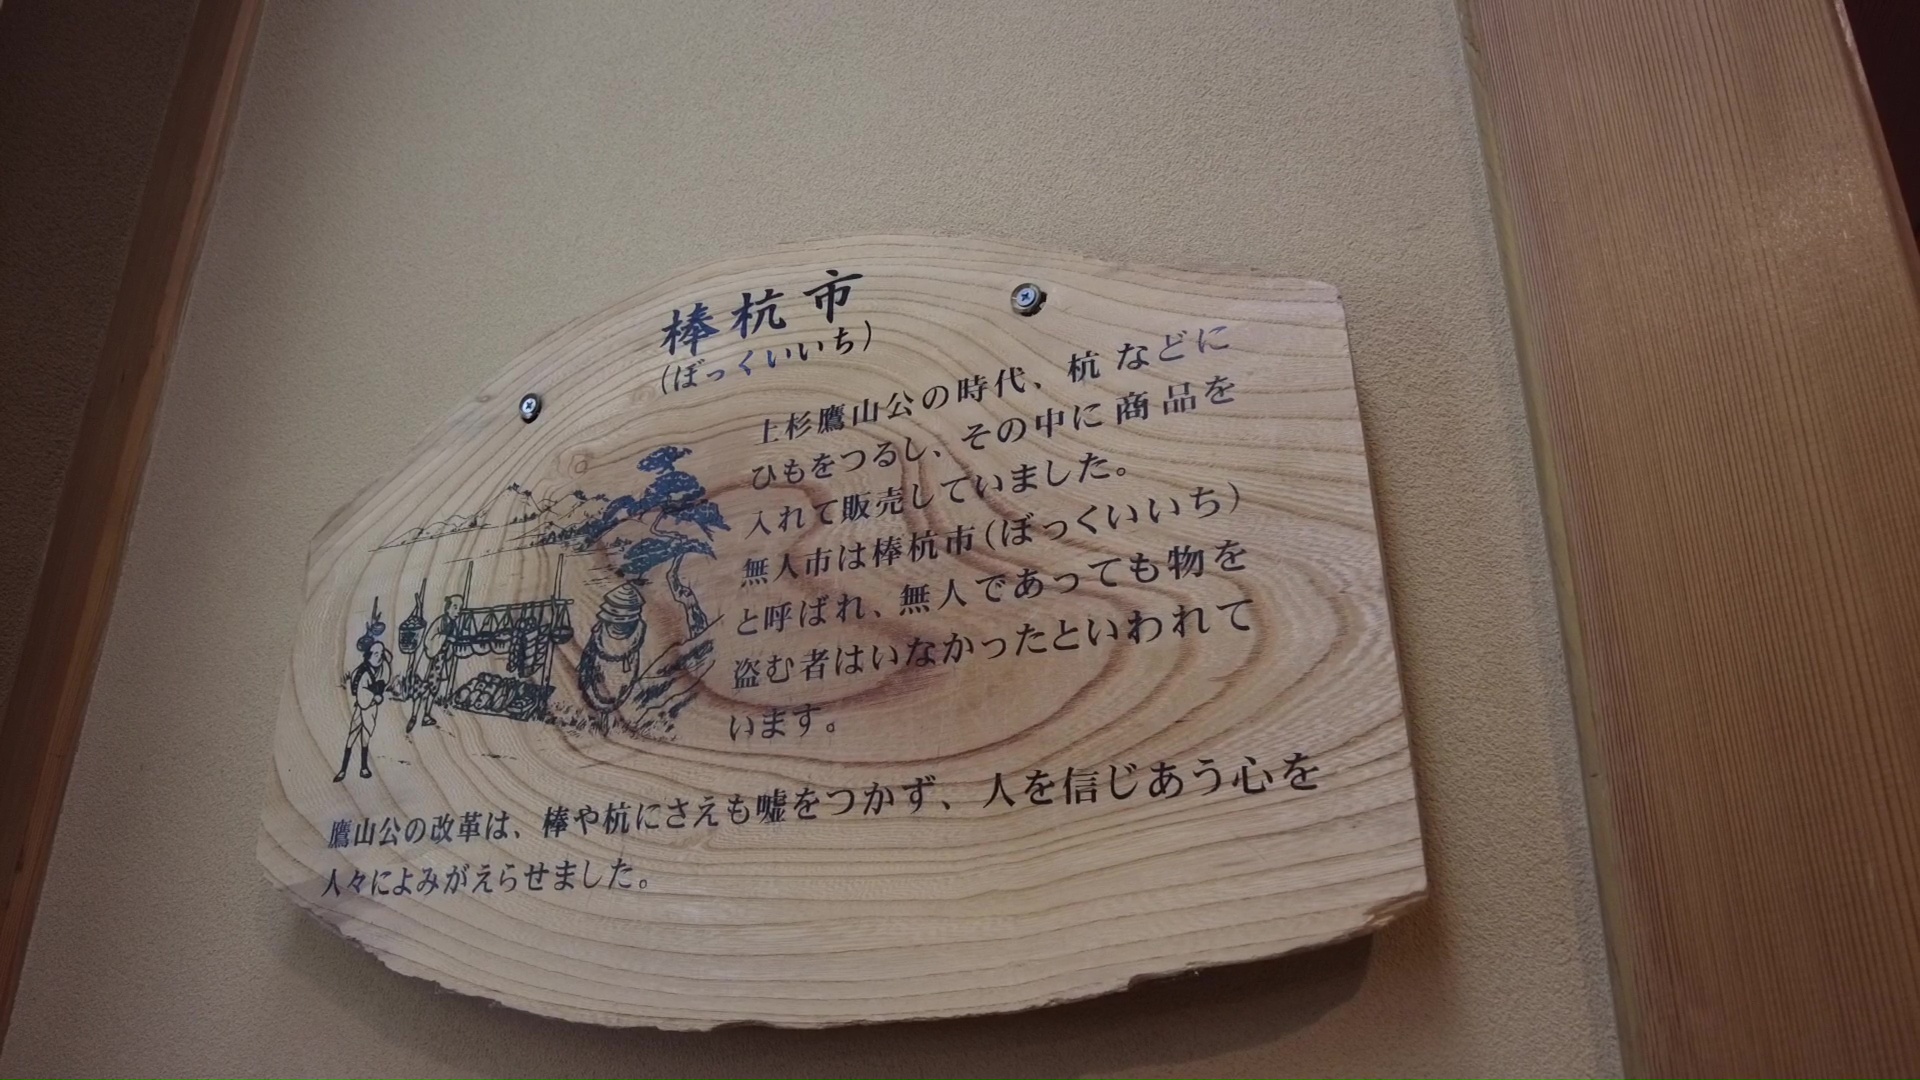 棒杭市
(ぼっくいいち)
上杉鷹山公の時代、杭などに
ひもをつるし、その中に商品を
入れて販売していました。
無人市は棒杭市(ぼっくいいち)
と呼ばれ、無人であっても物を
盗む者はいなかったといわれて
います。
鷹山公の改革は、棒や杭にさえも嘘をつかず、人を信じあう心を
人々によみがえらせました。